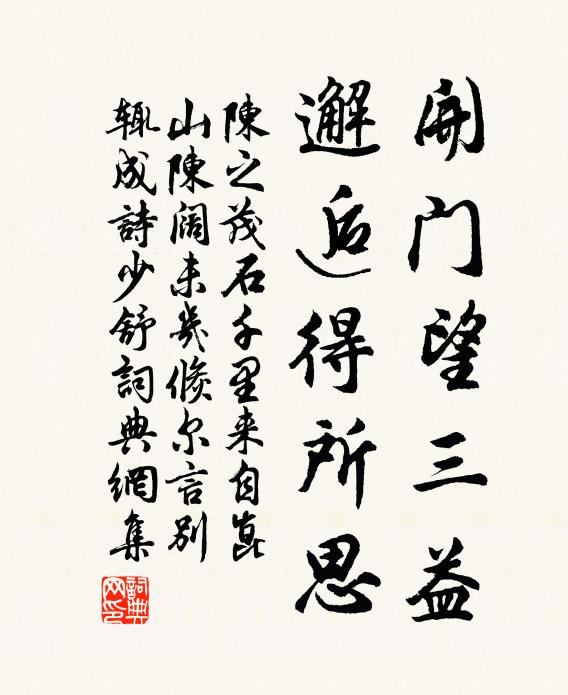 開門望三益
邂逅得所思
陳之茂石千里来自崑
山陳闊未幾倏尔言别
輒成詩少舒詞典網集
詞典網印